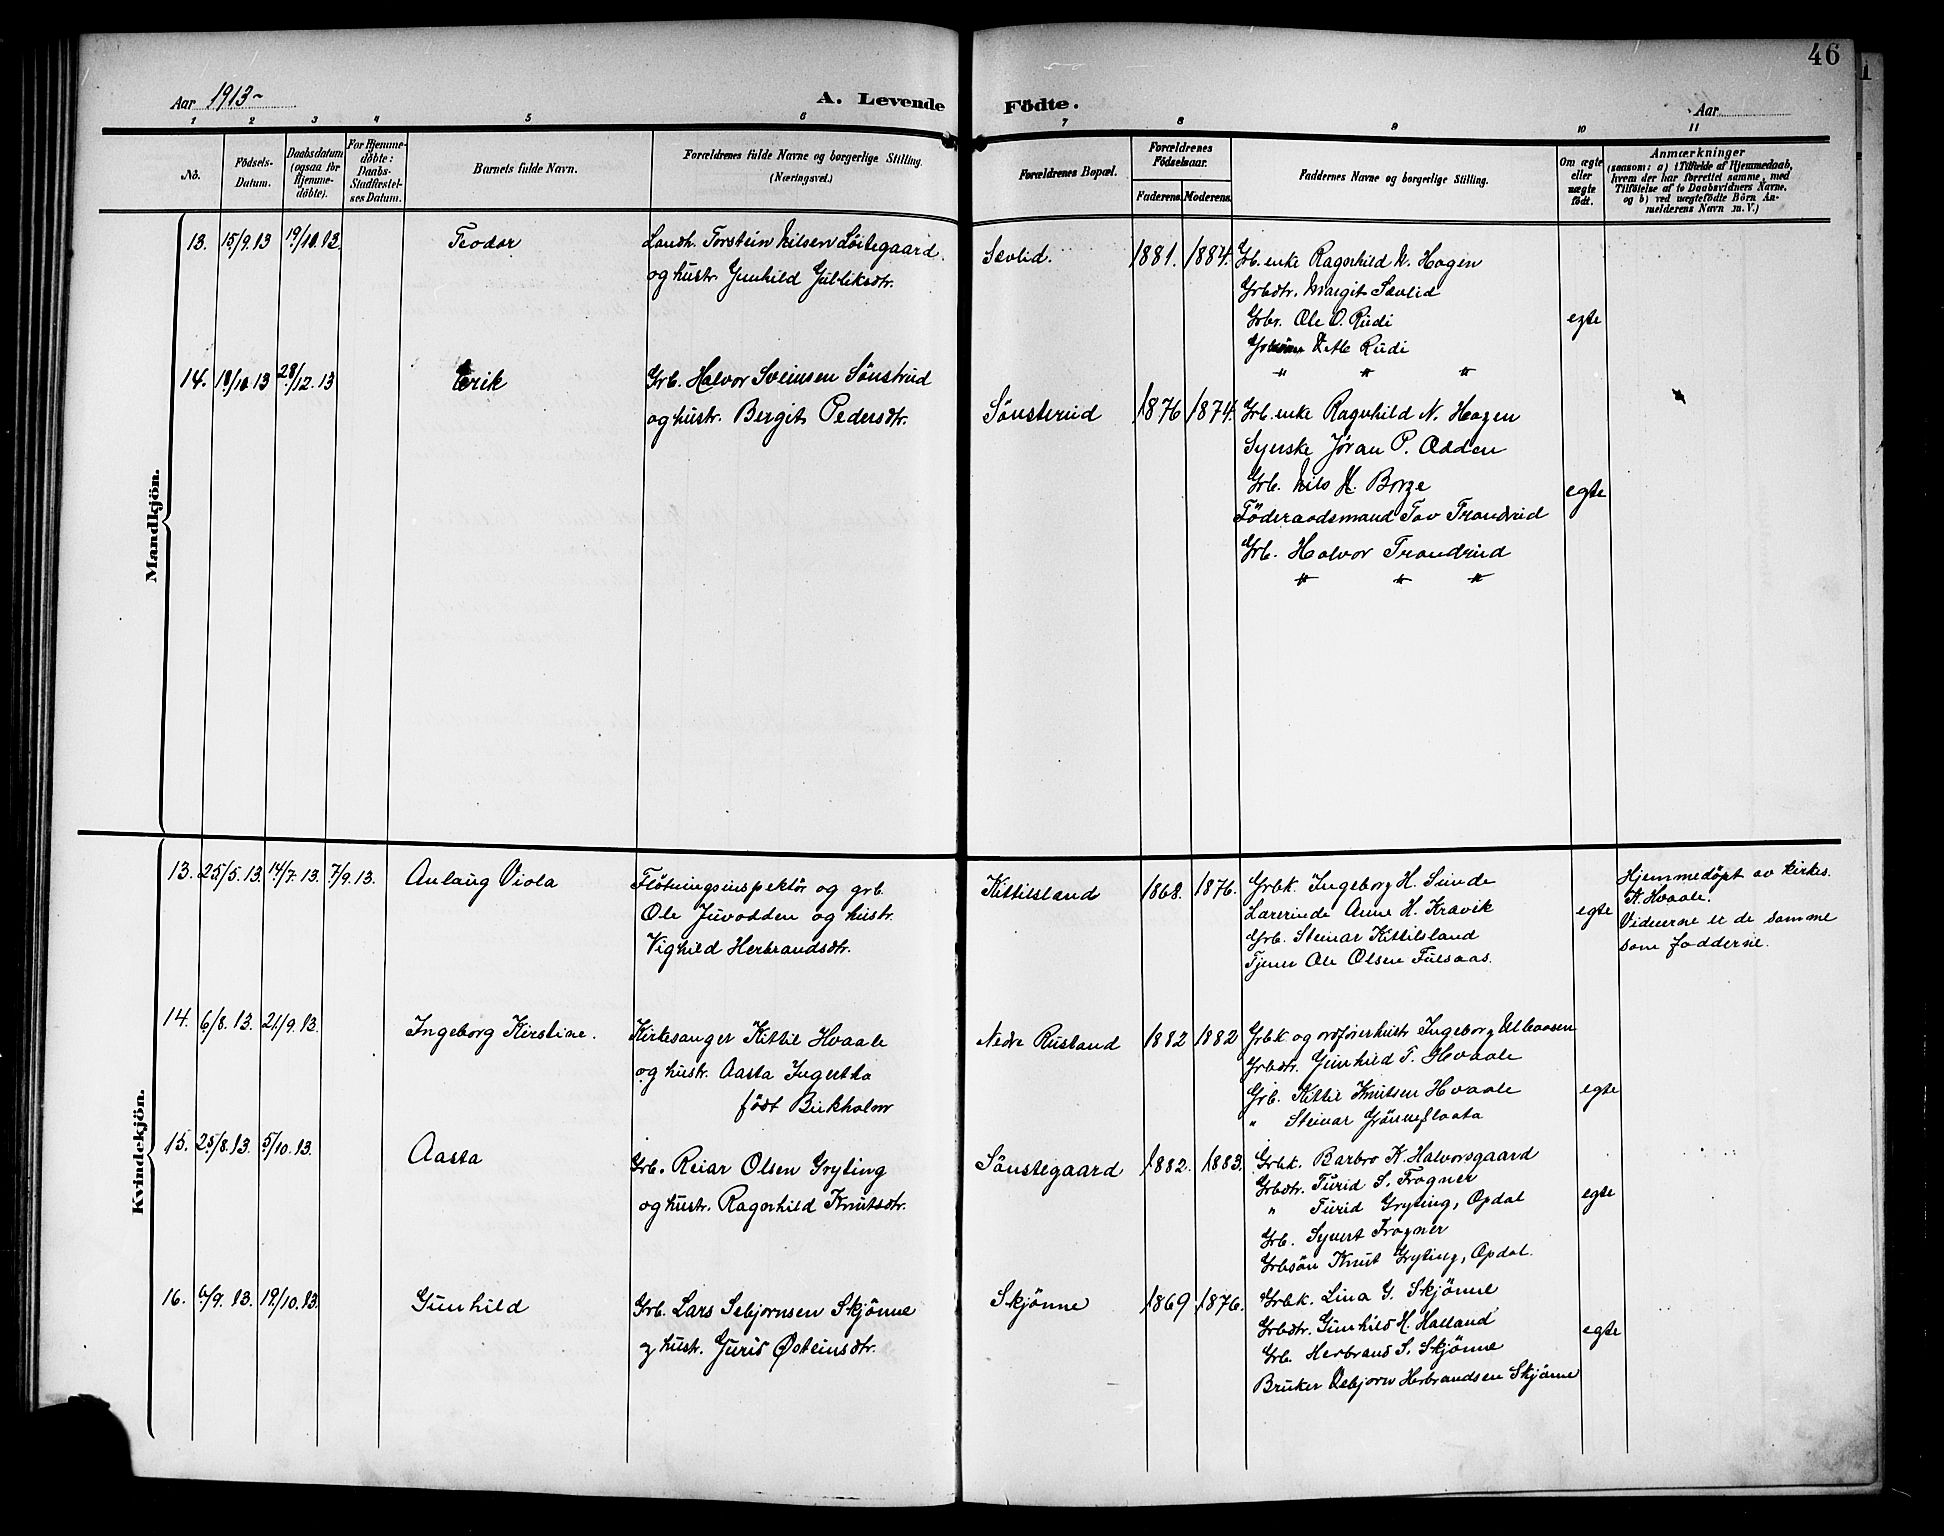 46
Aar 1913-
A. Levende Födte.
Aar
1 2 3 4 5 6 7 8 9 10 11
No.
Födsels-
Datum.
Daabsdatum
(ogsaa for
Hjemme-
döbte).
For Hjemme-
döbte:
Daabs-
Stadfæstel-
ses Datum.
Barnets fulde Navn.
Forældrenes fulde Navne og borgerlige Stilling.
(Næringsvei.)
Forældrenes Bopæl.
Forældrenes
Födselsaar.
Faderens. Moderens.
Faddernes Navne og borgerlige Stilling.
Om ægte
eller
uægte
födt.
Anmærkninger
(saasom: a) i Tilfælde af Hjemmedaab,
hvem der har forrettet samme, med
Tilföielse af to Daabsvidners Navne.
og b) ved uægtefödte Börn An-
melderens Navn m. V.)
Mandkjön.
13. 15/9.13 19/10.13. Teodor
Landh. Torstein Nilsen Löitegaard.
og hustr. Gunhild Gulliksdtr.
Sævlid. 1881. 1884.
Grb.enke Ragnhild N. Hagen
Grbdtr. Margit Sævlid
Grbr. Ole O. Rudi
Kittil Rudi
" " "
egte
14. 18/10.13 28/12.13 Erik
Grb. Halvor Sveinsen Sönstrud
og hustr. Bergit Pedersdtr.
Sönsterud 1876 1874.
Grb.enke Ragnhild N. Hagen
Syerske Jöran P. Odden
Grb. Nils H. Borge
Föderaadsmand Tov Trondrud
Grb. Halvor Trondrud
" " "
egte
Kvindekjön.
13. 25/5.13. 14/7.13. 7/9.13. Anlaug Viola
Flötningsinspektör og grb
Ole Juvodden og hustr.
Vighild Herbrandsdtr.
Kittilsland 1868. 1876.
Grbk. Ingeborg H. Sunde
Lærerinde Anne H. Kravik
Grb. Steinar Kittilsland
Tjener Ole Olsen Fulsaas.
egte
Hjemmedöpt av kirkes.
K. Hvaale.
Vidnerne er de samme
som fadderne.
14. 6/8.13. 21/9.13. Ingeborg Kirstine.
Kirkesanger Kittil Hvaale
og hustr. Aasta Ingertha
födt Birkholm
Nedre Rustand 1882 1882
Grbk og ordförerhustr Ingeborg Ulbaasen
Grbdtr. Gunhild T. Hvaale
Grb. Kittil Knutsen Hvaale
" Steinar Grönneflaata
egte
15. 25/8.13. 5/10.13. Aasta
Grb. Reiar Olsen Gryting
og hustr. Ragnhild Knutsdtr.
Sönstegaard 1882. 1883.
Grbk. Barbro K. Halvorsgaard
Grbdtr. Turid S. Frogner
" Turid Gryting, Opdal
Grb. Syvert Frogner
Grbsön Knut Gryting, Opdal.
egte
16. 6/9.13. 19/10.13. Gunhild
Grb. Lars Sebjornsen Skjönne
og hustr. Guris Østeinsdtr.
Skjönne 1869 1876.
Grbk. Lina G. Skjönne
Grbdtr. Gunhild H. Halland
Grb. Herbrand S. Skjönne
Bruker Asbjorn Herbrandsen Skjönne
egte